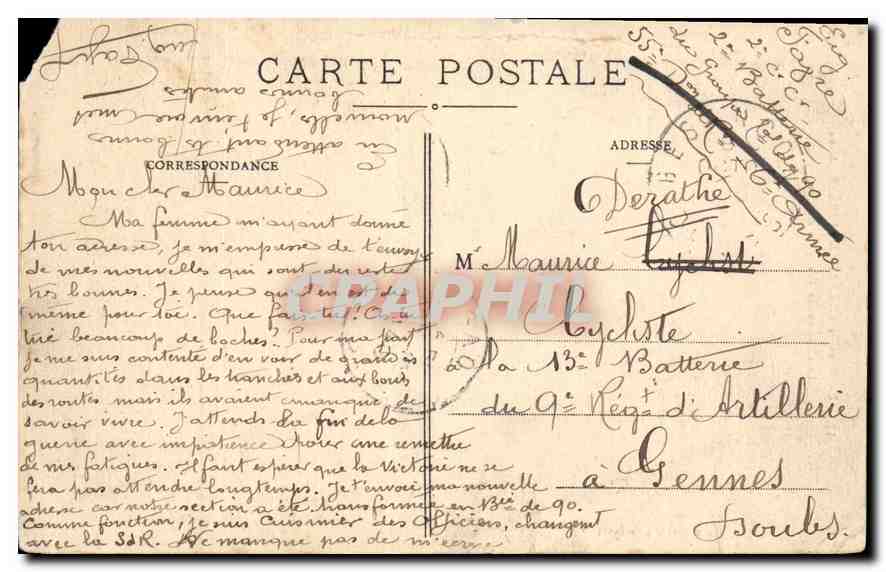 CARTE POSTALE
CORRESPONDANCE
Mon cher Maurice
Ma femme m'ayant donné
ton adresse, je m'empresse de t'envoyer
de mes nouvelles qui sont du reste
très bonnes. Je pense qu'il en est de
même pour toi. Que fais-tu? As-tu
tué beaucoup de boches. Pour ma part
je me suis contenté d'en voir de grandes
quantités dans les tranchées et aux bords
des routes mais ils avaient manqué de
savoir vivre. J'attends la fin de la
guerre avec impatience pour me remettre
de mes fatigues. Il faut espérer que la Victoire ne se
fera pas attendre longtemps. Je t'envoie ma nouvelle
adresse car notre section a été transformée en Bie de 90.
Comme fonction, je suis Cuisinier des Officiers, changement
avec la SdR. Ne manque pas de m'écrire
En attendant tes bonnes
nouvelles, je t'envoie mes
bonnes amitiés
Eug. Fagre
ADRESSE
Derathe
Mr Maurice Cycliste
Cycliste
à la 13e Batterie
du 9e Régt d'Artillerie
à Gennes
Doubs.
Eug
Fagre
2e Cr
2e Batterie
du Groupe de 90
55e
Armée
CPAPHIL